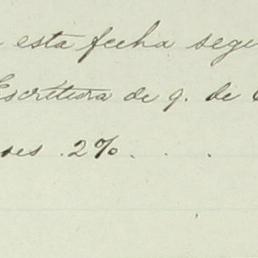 esta fecha segu
Escritura de q. de
es 2%. . .